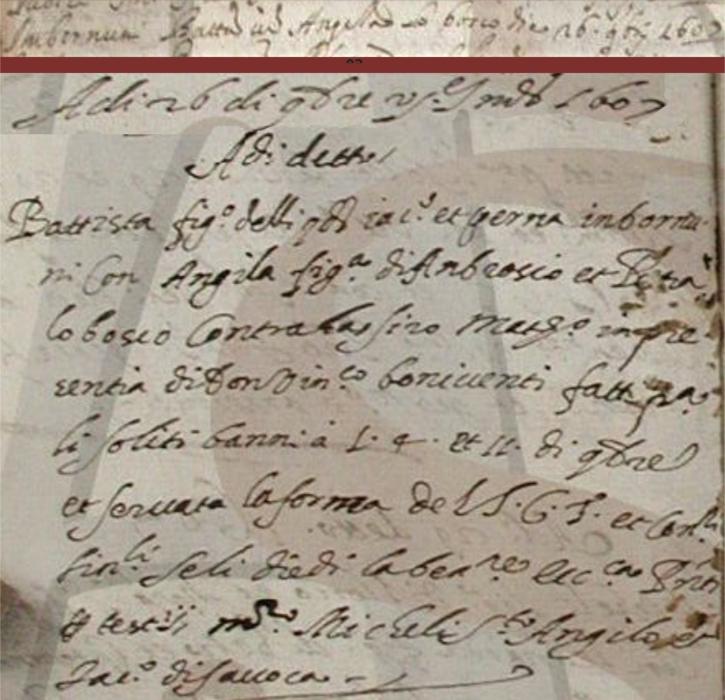 Imbornuni Batta cu Angila lo bosco die 26 9bri 1607
Adi 26 di 9bre vj.e Ind. 1607
Adi detto
Battista fig.o delli qdi iac.o et perna inbornu-
ni Con Angila fig.a di Ambrosio et Petra
lo bosco Contrahassiro matr.o in pre-
sentia di Don Vin.co boniventi fatti pa
li soliti banni a 1. 4. et 11. di 9bre
et servata la forma del S. C. T. et Con.li
sin.li seli diedi la ben.ne ecc.ca Pnti
p testijj m.ro Micheli S.to Angilo et
Iac.o di savoca